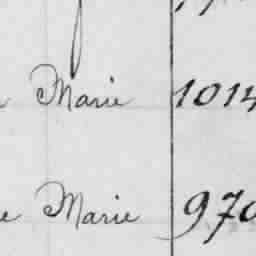 Marie 1014
e Marie 970